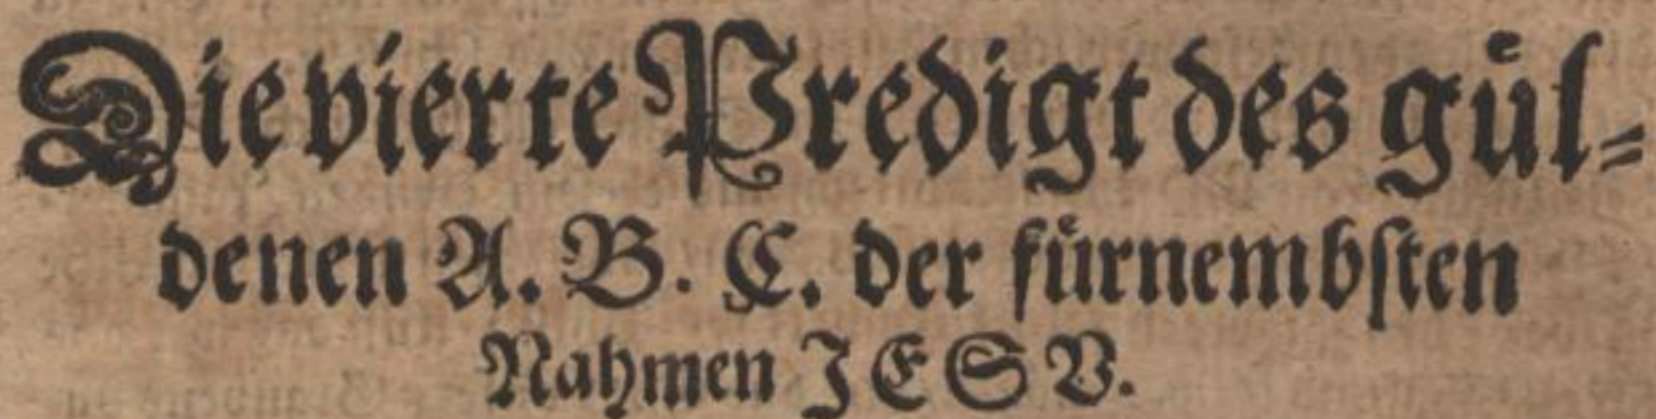 Die vierte Predigt des guͤl⸗
denen A. B. C. der fuͤrnembſten
Nahmen JESV.